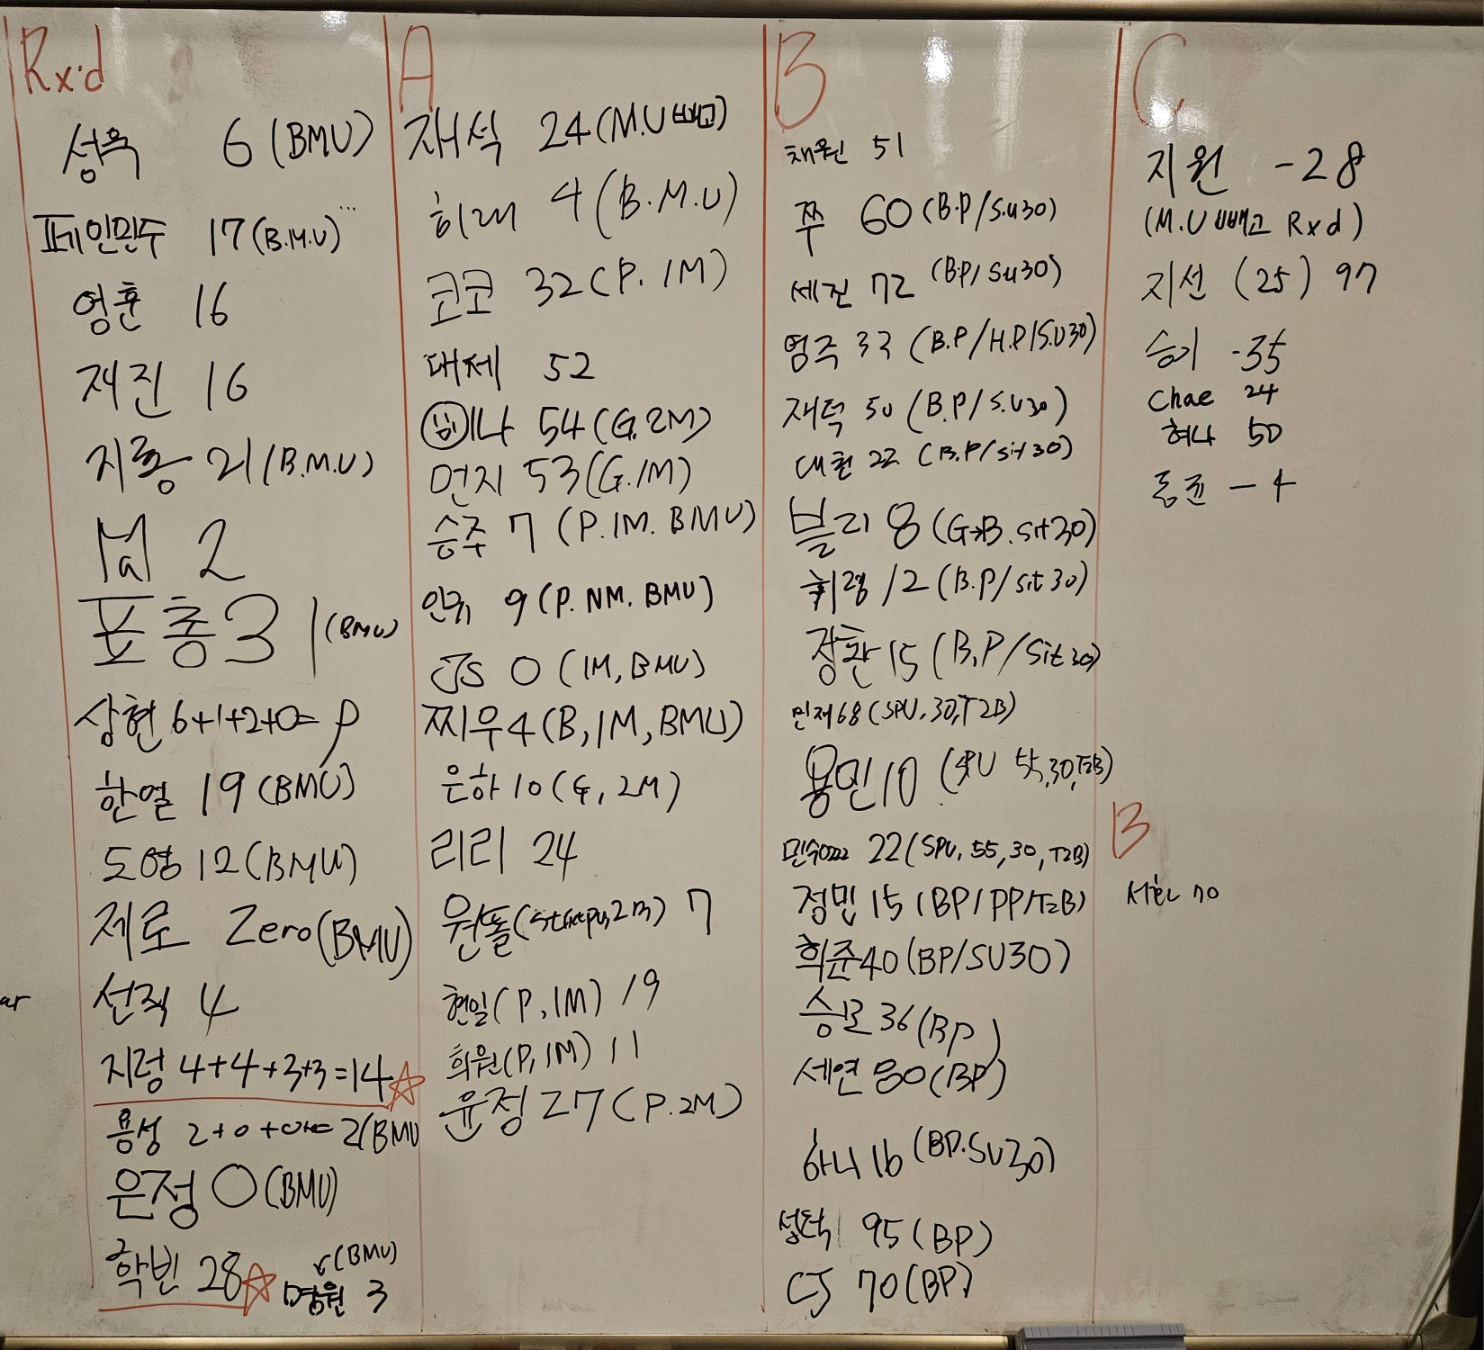 Rx'd
성욱 6 (BMU)
페인민수 17 (B.M.U)
영훈 16
재진 16
지룡 21 (B.M.U)
2
표총 31 (BMU)
상현 6+1+2+0= 9
한열 19 (BMU)
도영 12 (BMU)
제로 Zero (BMU)
선적 4
지렁 4+4+3+3=14
용성 (BMU
은정 0 (BMU)
학빈 28
(BMU)
명원 3
A
재석 24 (M.U 빼고)
히래 4 (B.M.U)
코코 32 (P. 1M)
대제 52
54 (G. 2M)
먼지 53 (G. 1M)
승주 7 (P. 1M. BMU)
인규 9 (P. NM. BMU)
JS 0 (1M, BMU)
찌우 4 (B, 1M, BMU)
은하 10 (G, 2M)
리리 24
원똘 7
현일 (P, 1M) 19
희원 (P, 1M) 11
윤정 27 (P. 2M)
B
채원 51
쭈 60 (B.P/S.U30)
세진 72 (BP/SU30)
명국 33 (B.P/H.P/S.U30)
재덕 50 (B.P/S.U30)
대헌 22 (B.P/sit 30)
블리 8 (G→B. sit 30)
휘령 12 (B.P/sit 30)
장환 15 (B.P/Sit 30)
민재 68 (SPU, 30, T2B)
용민 10 (SPU 55, 30, T2B)
민수 22 (SPU, 55, 30, T2B)
정민 15 (BP/PP/T2B)
희준 40 (BP/SU30)
승모 36 (BP)
세연 80 (BP)
하니 16 (BP.SU30)
성탁 95 (BP)
CJ 70 (BP)
C
지원 - 28
(M.U 빼고 Rxd)
지선 (25) 97
승이 -35
Chae 24
혀나 50
동균 - 4
B
70